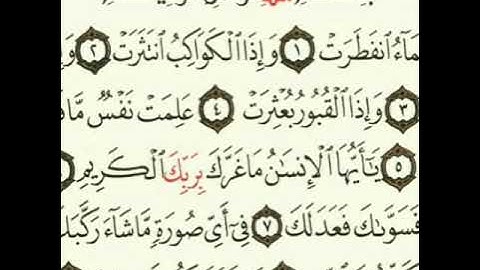 مَآءُ ٱنفَطَرَتْ ١ وَإِذَا ٱلْكَوَاكِبُ ٱنتَثَرَتْ ٢
٣ وَإِذَا ٱلْقُبُورُ بُعْثِرَتْ ٤ عَلِمَتْ نَفْسٌ مَّا
٥ يَـٰٓأَيُّهَا ٱلْإِنسَـٰنُ مَا غَرَّكَ بِرَبِّكَ ٱلْكَرِيمِ
فَسَوَّىٰكَ فَعَدَلَكَ ٧ فِىٓ أَىِّ صُورَةٍ مَّا شَآءَ رَكَّبَكَ